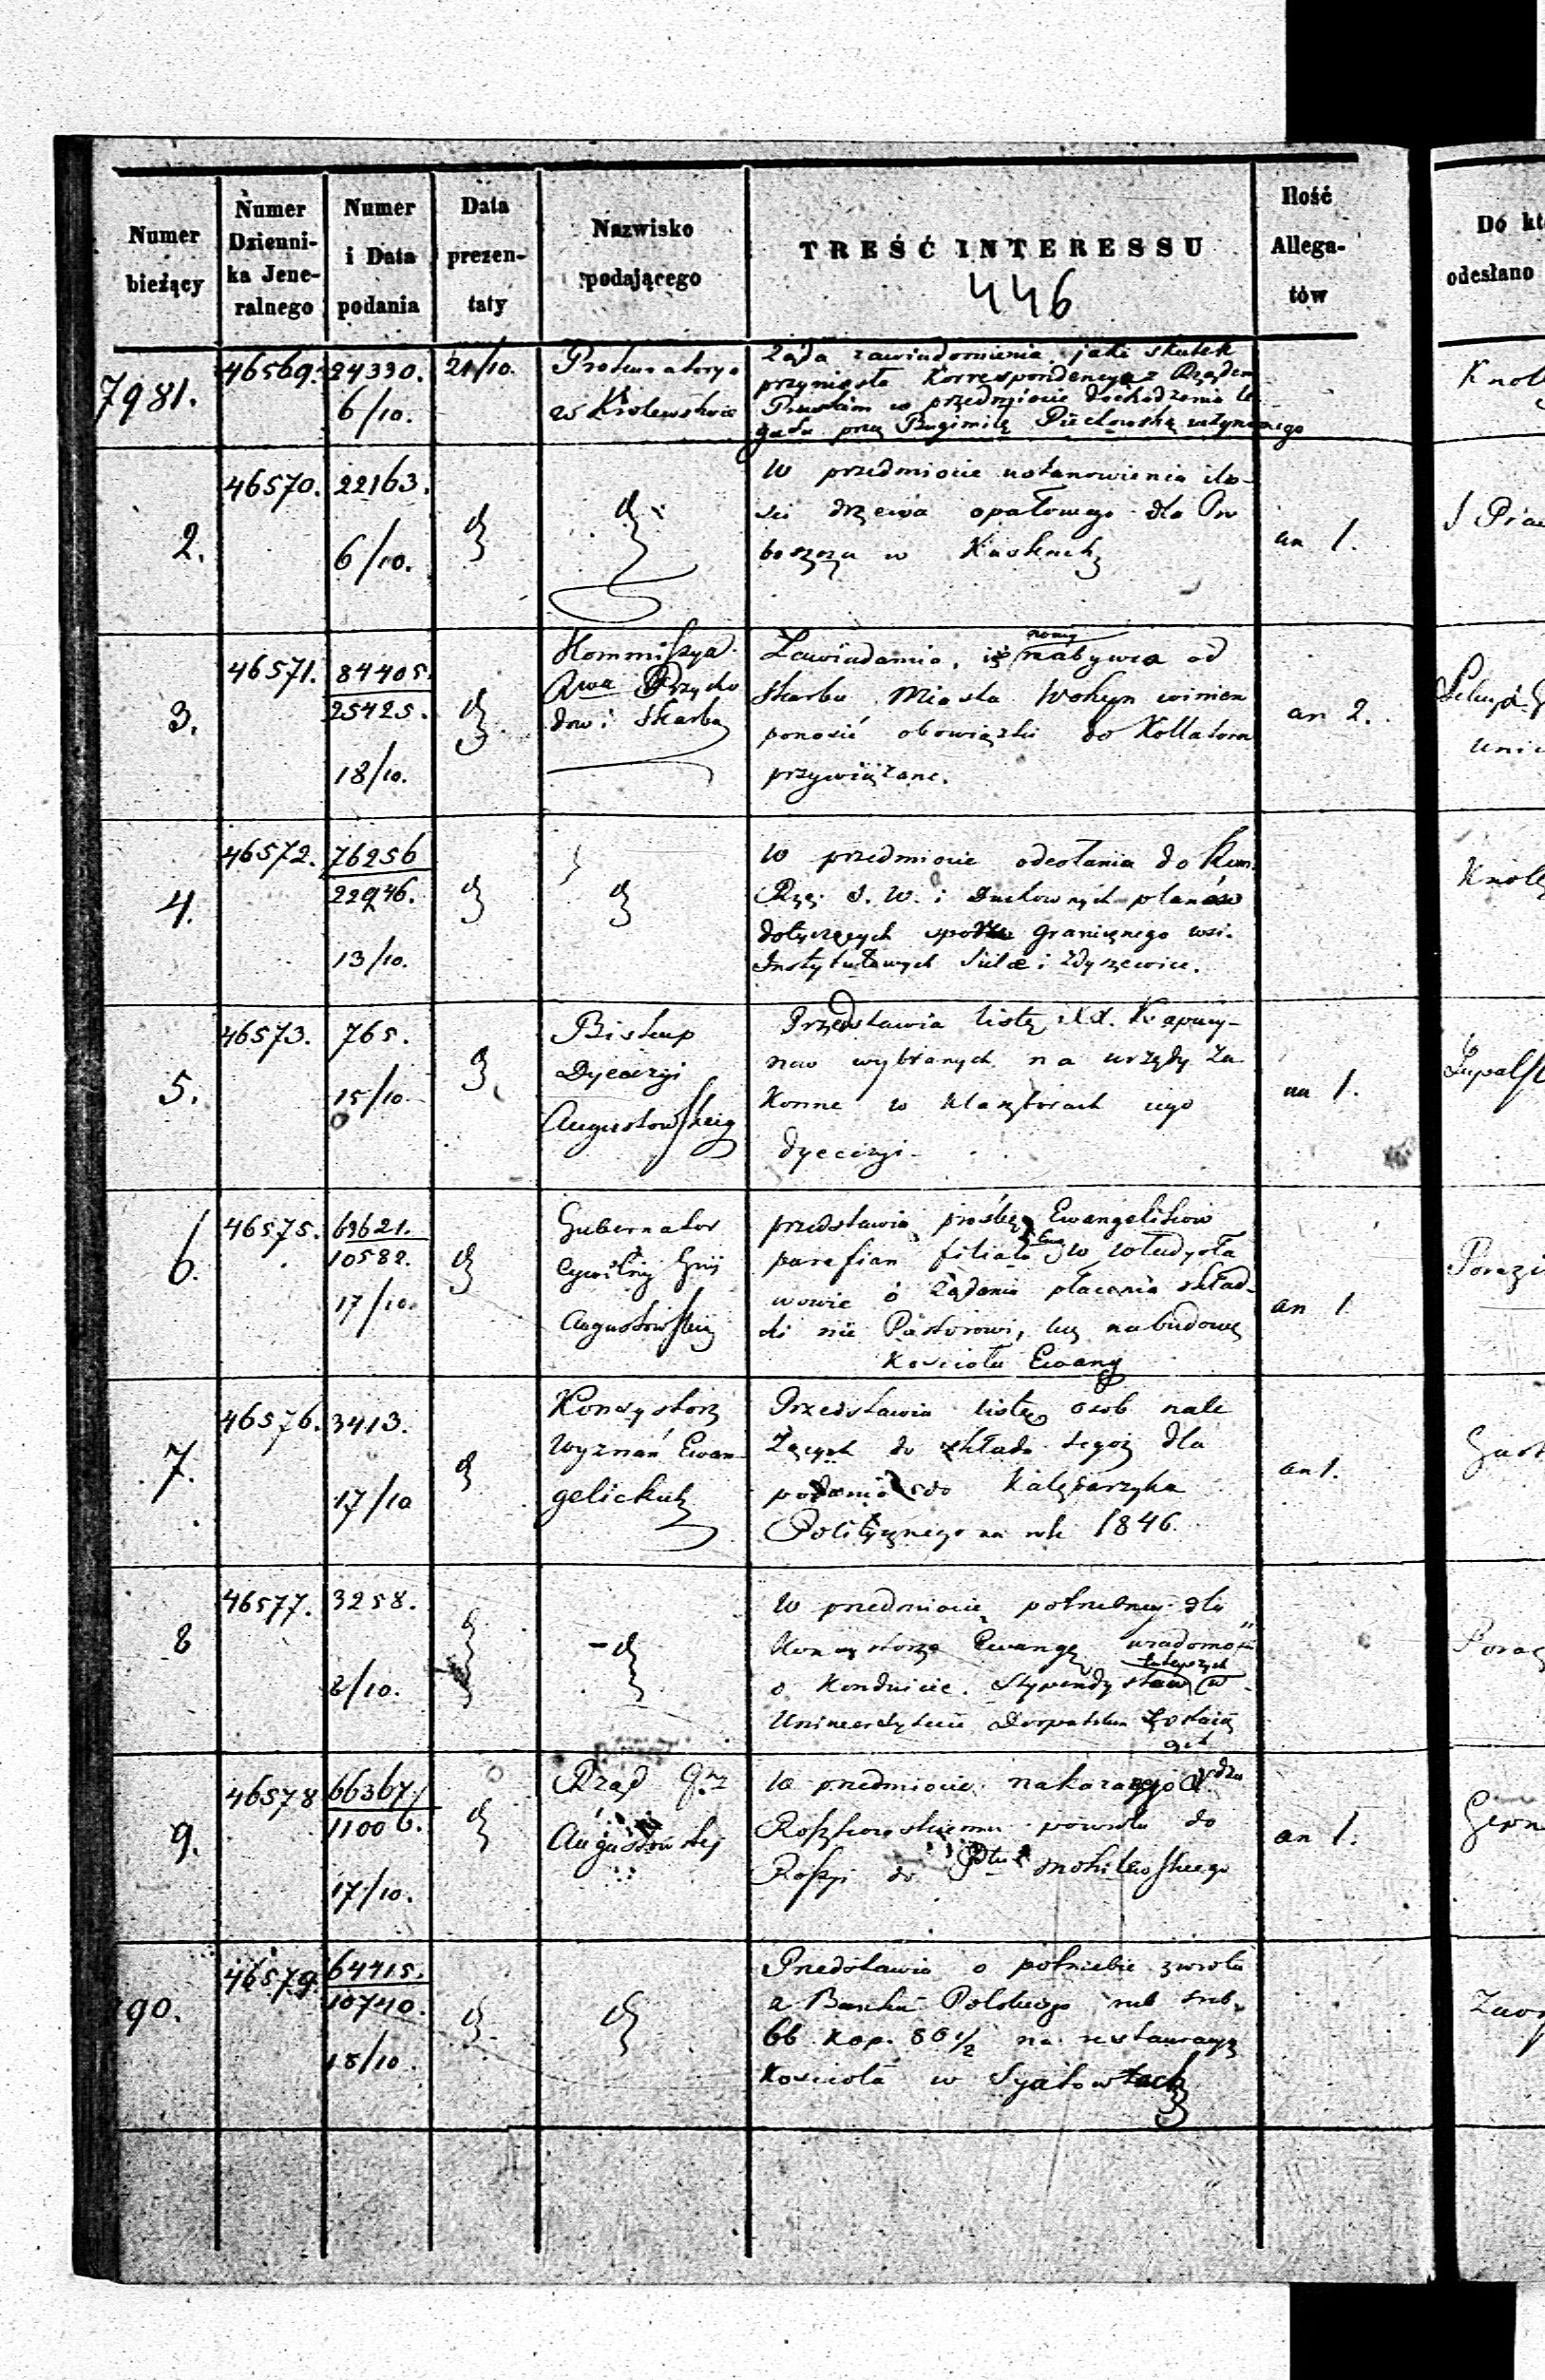 Numer bieżący
Numer Dzienni-ka Jene-ralnego
Numer i Data podania
Data prezen-taty
Nazwisko podającego
TREŚĆ INTERESSU
446
Ilość Allega-tów
Do kt
odesłano
7981.
46569.
24330.
6/10.
21/10.
Prokuratorya
w Krolewstwie
Żąda zawiadomienia, jaki skutek
przyniosła Korrespondencya z Rządem
Pruskim w przedmiocie dochodzenia le
gatu przez
2.
46570.
22163.
6/10.
W przedmiocie ustanowienia ilo-
sci drzewa opałowego dla Pro
boszcza w
an 1.
3.
46571.
84405.
25425.
18/10.
Kommissya
Rwa Przycho
dow i Skarbu
Zawiadamia, iż nowy nabywca od
Skarbu Miasta Wohyn winien
ponosić obowiązki do Kollatora
przywiązane.
an 2.
4.
46572.
76256
22946.
13/10.
W przedmiocie odesłania do Kom.
Rzą. S. W. i Duchownych planów
dotyczących sporu granicznego wsi
Instytutowych i Zdyszewice.
5.
46573.
765.
15/10.
Biskup
Dyecezyi
Augustowskiej
Przedstawia listę XX. Kapucy-
now wybranych na urzędy Za
Konne w Klasztorach jego
dyecezyi.
an 1.
6.
46575.
63621.
10582.
17/10.
Gubernator
Cywilny Gnij
Augustowskiej
przedstawia prośbę Ewangelikow
parafian filiału Ewa w Władysła
wowie o żądania płacenia skład-
ki nie Pastorowi, lecz na budowę
Kosciołu Ewang
an 1
7.
46576.
3413.
17/10
Konsystorz
Wyznań Ewan
gelickich
Przedstawia listę osob nale
żących do składu tegoż dla
podania do Kalędarzyka
Politycznego na rok 1846.
an 1.
8
46577.
3258.
8/10.
W przedmiocie potrzebney dla
Konsystorza Ewangę wiadomo
o Konduicie Stypendystow tutejszych w
Uniwersytecie Dorpatskim Zostaią
cych
9.
46578
66367/
11006.
17/10.
Rząd Grz
Augustowskiej
W przedmiocie nakazanego Xdzu
Roszkowskiemu powrotu do
Rossyi do Ptu Mohilewskiego
an 1.
90.
46579.
64415.
10740.
18/10.
Przedstawia o potrzebie zwrotu
z Banku Polskiego rub sreb.
66 kop. 86 1/2 na restauracyą
Kosciola w